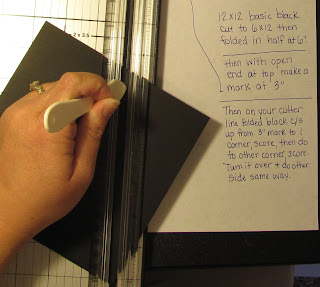 12x12 basic black
cut to 6x12 then
folded in half at 6"
then with open
end at top make a
mark at 3"
Then on your cutter
line folded black c/s
up from 3" mark to 1
corner, score, then do
to other corner, score.
Turn it over + do other
side same way.